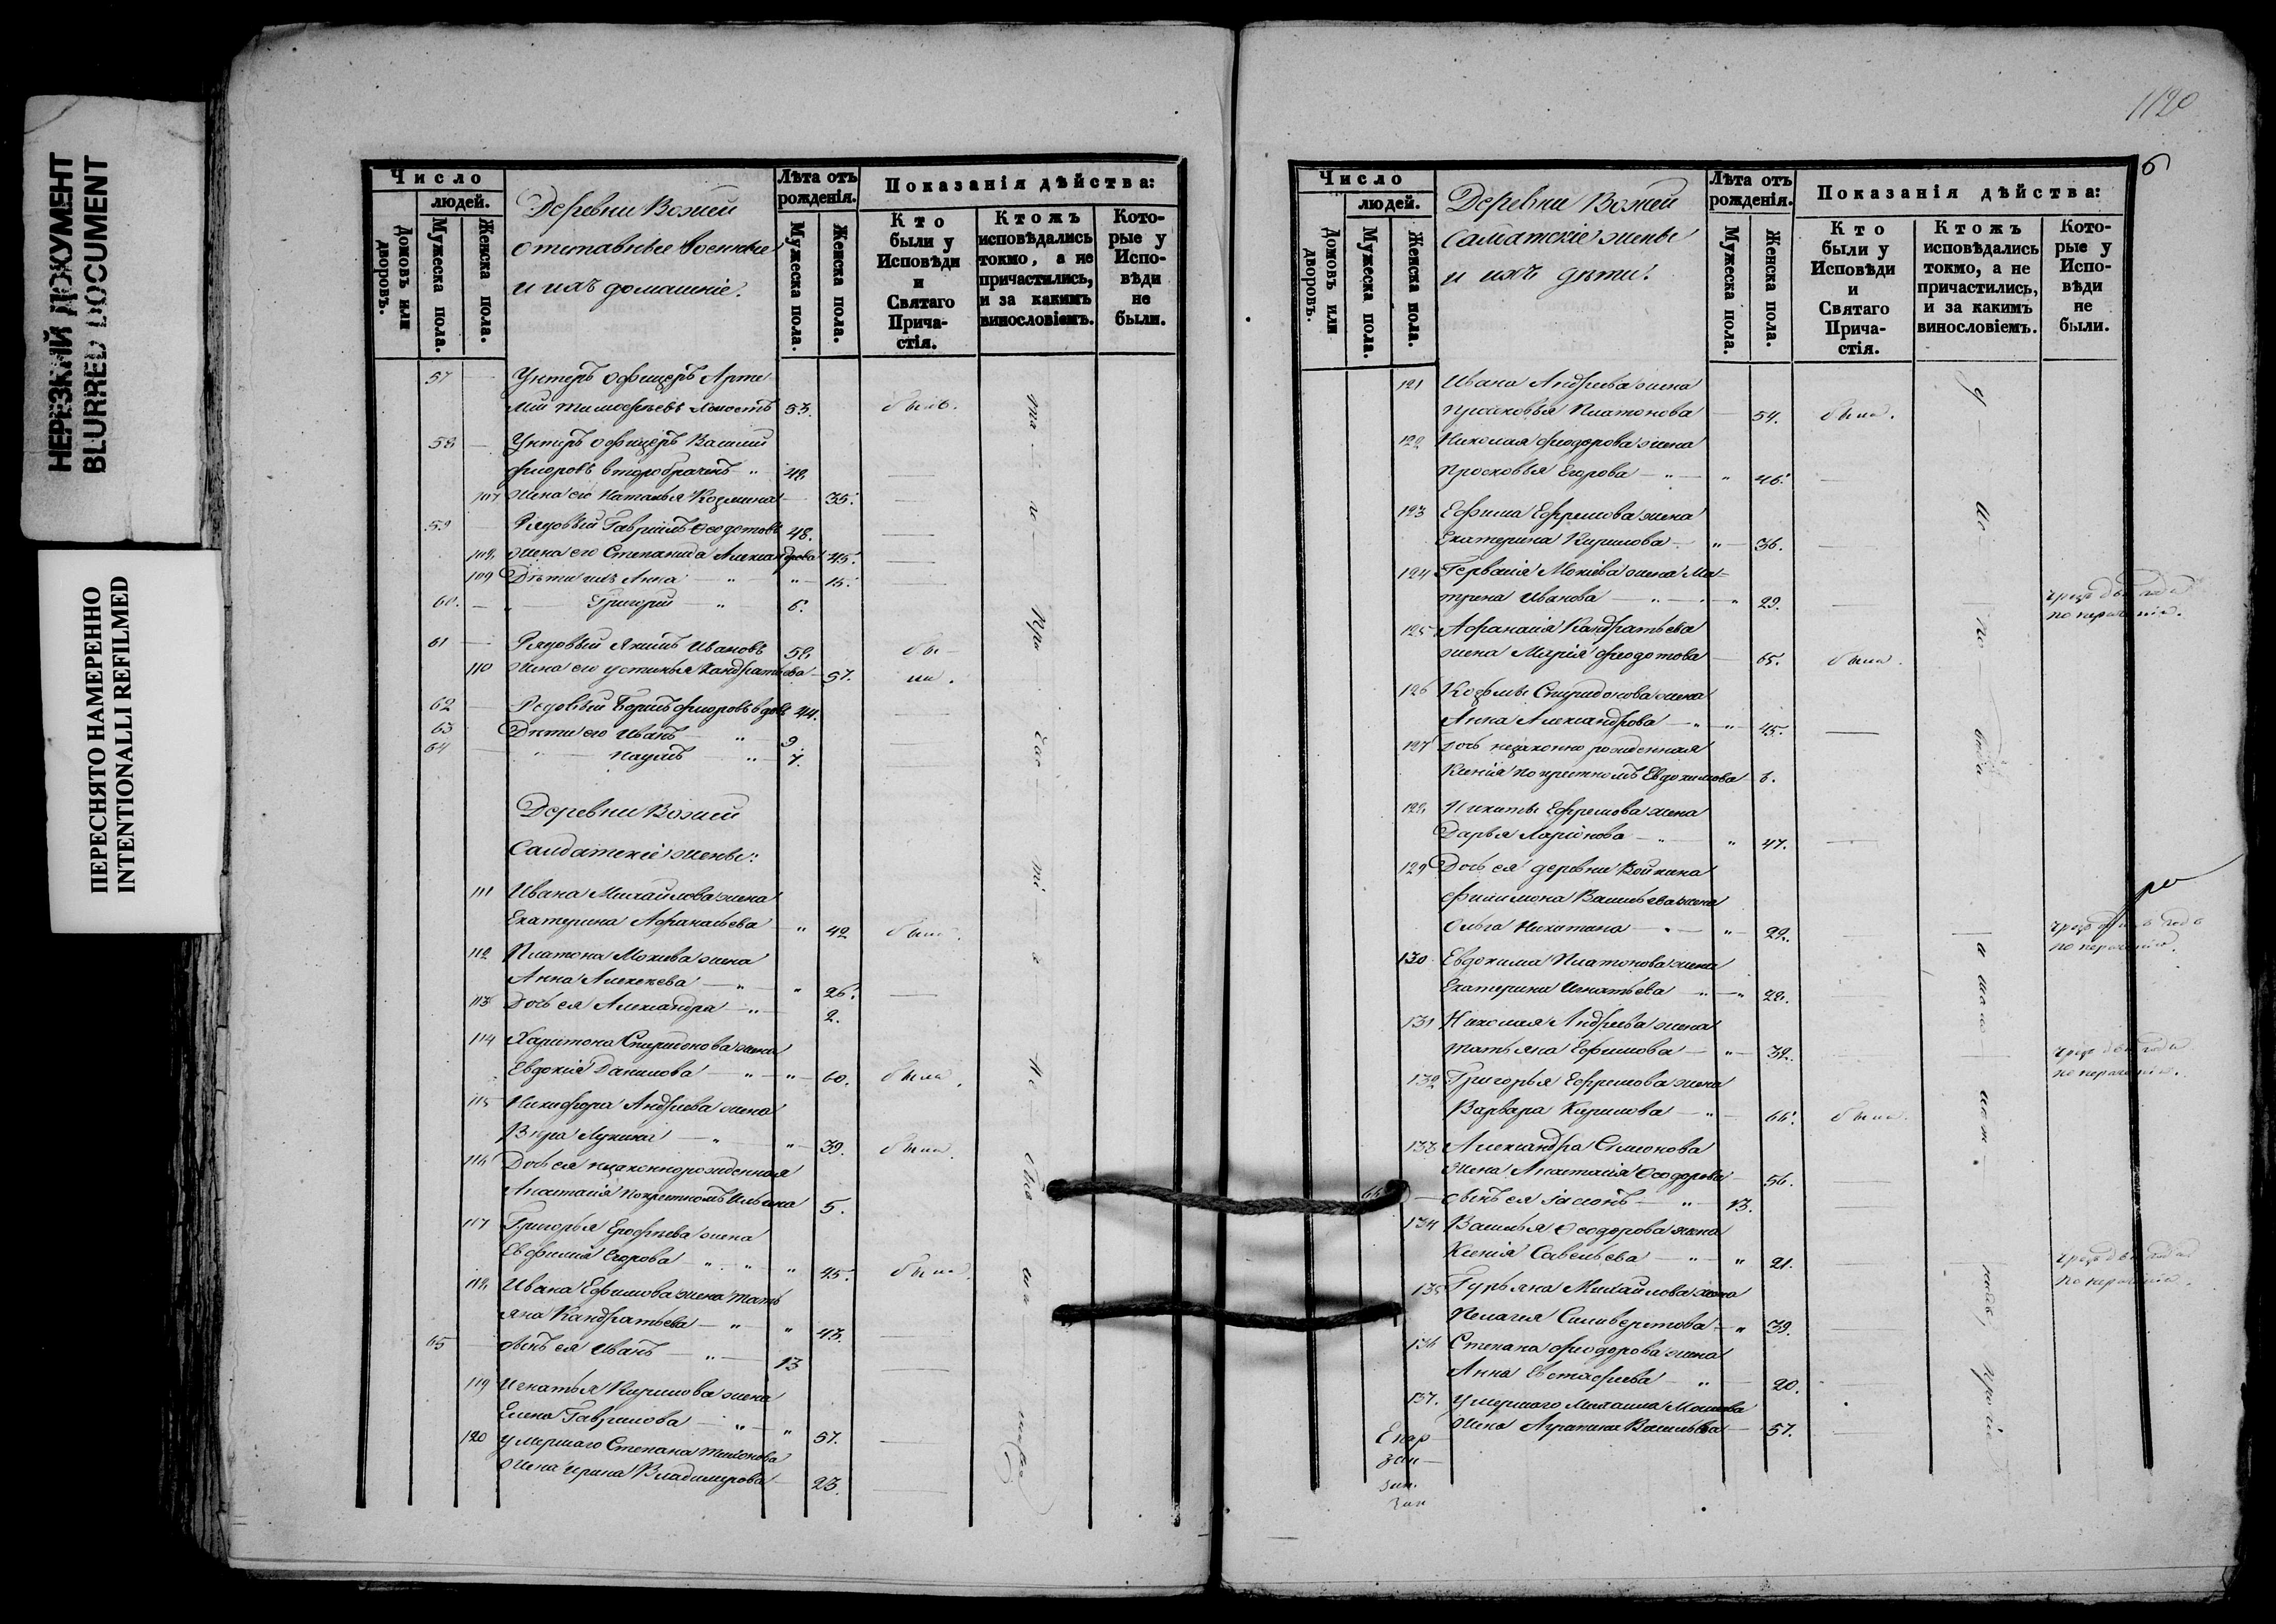 НЕРЕЗКИЙ ДОКУМЕНТ
BLURRED DOCUMENT
ПЕРЕСНЯТО НАМЕРЕННО
INTENTIONALLI REFILMED
Число
людей.
Домовъ или дворовъ.
Мужеска пола.
Женска пола.
Деревни Вожей
отставные военные
и ихъ домашніе.
Лѣта отъ рожденія.
Мужеска пола.
Женска пола.
Показанія дѣйства:
Кто были у Исповѣди и Святаго Причастія.
Ктожъ исповѣдались токмо, а не причастились, и за какимъ винословіемъ.
Которые у Исповѣди не были.
57 Унтеръ офицеръ Арте
мій Тимофѣевъ холостъ 53. былъ.
58 Унтеръ офицеръ Василій
Фиоровъ второбраченъ 48
107 жена его Наталья Козмина 35.
59 Рядовый Гавріилъ Ѳеодотовъ 48.
108 жена его Степанида Александрова 45.
109 Дѣти ихъ Анна 15.
60. Григорій 6.
61 Рядовый Якимъ Ивановъ 58. бы-
110 жена его Устинья Кандратьева 57. ли.
62 Рядовый Фиоровъ вдовъ 44.
63 Дѣти его Иванъ 9
64 Наумъ 7.
Деревни Вожей
Салдатскіе жены:
111 Ивана Михайлова жена
Екатерина Афанасьева 42 была.
112 Платона Мокиева жена
Анна Алексеева 26.
113 Дочь ея Александра 2.
114 Харитона Спиридонова жена
Евдокія Данилова 60. была.
115 Никифора Андреева жена
Вѣра Лукина 39. была.
116 Дочь ея незаконнорожденная
Анастасія по крестномъ Ильина 5.
117 Григорья Ерофѣева жена
Евфимія Егорова 45. была.
118 Ивана Ефимова жена Тать
яна Кандратьева 43.
65 сынъ ея Иванъ 13
119 Игнатья Кирилова жена
Елена Гаврилова 57.
120 умершаго Степана
жена Ирина Владимирова 23.
1120
6
Число
людей.
Домовъ или дворовъ.
Мужеска пола.
Женска пола.
Деревни Вожей
Салдатскіе жены
и ихъ дѣти.
Лѣта отъ рожденія.
Мужеска пола.
Женска пола.
Показанія дѣйства:
Кто были у Исповѣди и Святаго Причастія.
Ктожъ исповѣдались токмо, а не причастились, и за какимъ винословіемъ.
Которые у Исповѣди не были.
121 Ивана Андреева жена
Прасковья Платонова 54. была.
122 Николая Феодорова жена
Просковья Егорова 46.
123 Ефима Ефремова жена
Екатерина Кирилова 36.
124 Гервасія Мокіева жена Ма-
трена Иванова 29.
125 Афанасія Кандратьева
жена Марія Феодотова 65. была.
126 Козьмы Спиридонова жена
Анна Александрова 45.
127 дочь незаконно рожденная
Ксенія по крестномъ Евдокимова 6.
128 Никиты Ефремова жена
Дарья Ларіонова 47.
129 Дочь ея деревни Войкина
Филимона Васильева жена
Ольга Никитина 22.
130 Евдокима Платонова жена
Екатерина Игнатьева 28.
131 Николая Андреева жена
Татьяна Ефимова 32.
132 Григорья Ефремова жена
Варвара Кирилова 66. была.
133 Александра Симонова
жена Анастасія Ѳеодорова 56.
66 сынъ ея Іасонъ 13.
134 Василья Ѳеодорова жена
Ксенія Савельева 21.
135 Гурьяна Михайлова жена
Пелагея Селиверстова 39.
136 Степана Феодорова жена
Анна Евстафиева 20.
137. умершаго
жена Васильева 57.